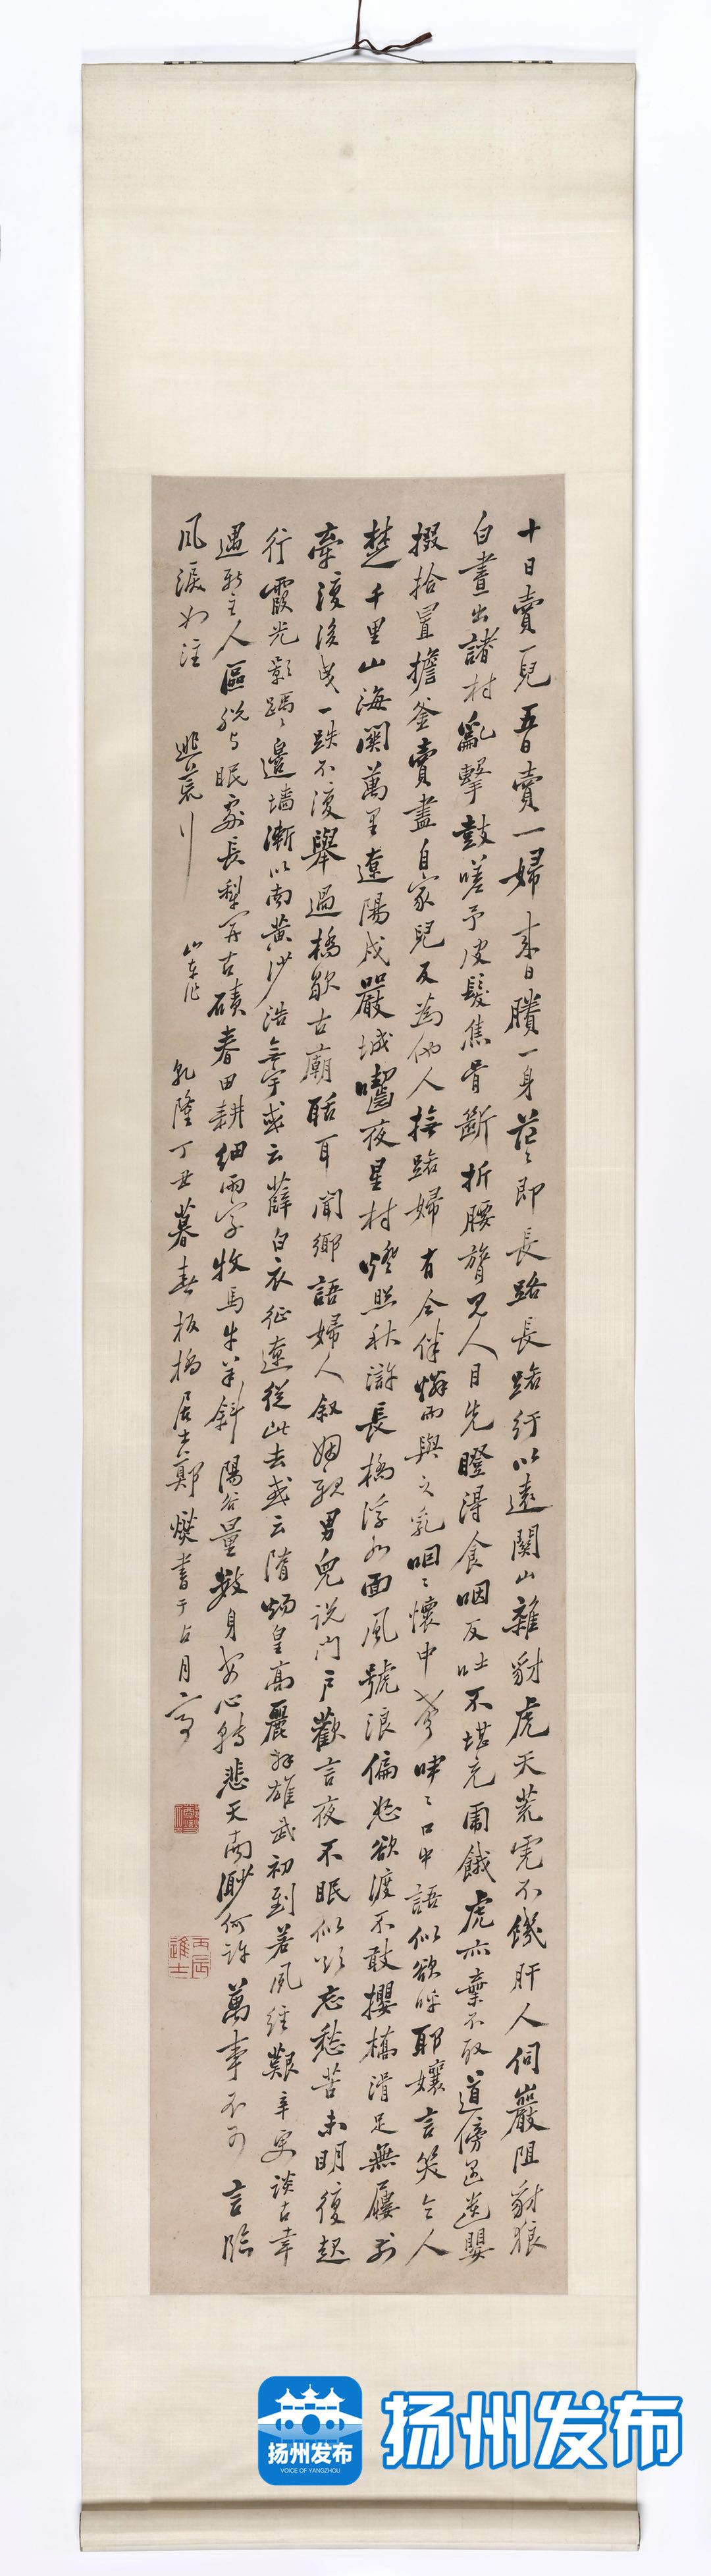 十日賣一兒五日賣一婦來日賸一身茫〻即長路長路行以遠關山雜豺虎天荒虎不饑肝人伺巖阻豺狼
白晝出諸村亂擊鼓嗟予皮髮焦骨斷折腰膂見人目先瞪得食咽反吐不堪充虎餓虎亦棄不取道傍遺嬰
掇拾置擔釜賣盡自家兒反為他人撫路婦有同伴憐而與之乳咽〻懷中聲咿〻口中語似欲呼耶孃言笑令人
楚千里山海關萬里遼陽戍嚴城嚙夜星村燈照秋滸長橋浮水面風號浪偏怒欲渡不敢攖橋滑足無屨前
牽復後曳一跌不復舉過橋歇古廟聒耳聞鄉語婦人叙姻親男兒說門戶歡言夜不眠似欲忘愁苦未明復起
行霞光影踽〻邊墻漸以南黃沙浩無宇或云薛白衣征遼從此去或云隋煬皇高麗拜雄武初到若夙經艱辛更談古幸
遇新主人區脫與眠處長犁開古磧春田耕細雨字牧馬牛羊斜陽谷量數身安心轉悲天南渺何許萬事不可言臨
風淚如注 逃荒行 山東作 乾隆丁丑暮春板橋居士鄭燮書于
丙辰進士
扬州发布
VOICE OF YANGZHOU
扬州发布